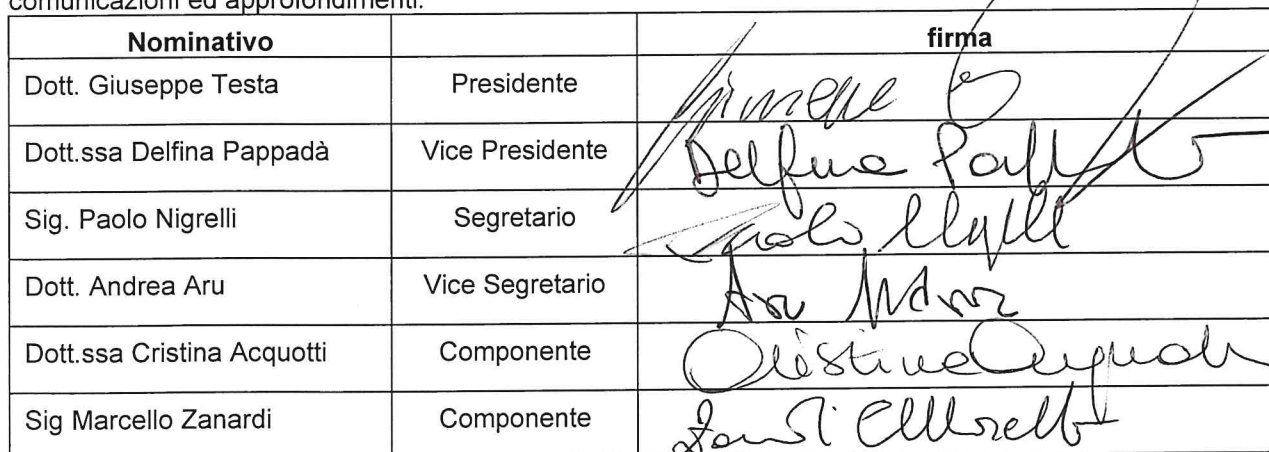 comunicazioni ed approfondimenti.
Nominativo firma
Dott. Giuseppe Testa Presidente
Dott.ssa Delfina Pappadà Vice Presidente Delfina
Sig. Paolo Nigrelli Segretario Paolo
Dott. Andrea Aru Vice Segretario Aru
Dott.ssa Cristina Acquotti Componente Cristina
Sig Marcello Zanardi Componente